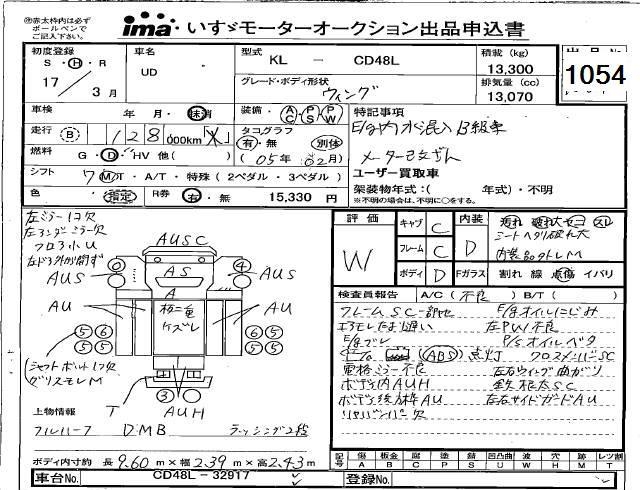 ※赤太枠内は必ず
ボールペンで
ご記入下さい。
ima いすゞモーターオークション出品申込書
初度登録
S・H・R
17/3月
車名
UD
型式
KL - CD48L
グレード・ボディ形状
ウィング
積載(kg)
13,300
排気量(cc)
13,070
1054
車検 年 月・抹消
走行 B 128,000km
燃料 G・D・HV 他( )
シフト 7 MT・A/T・特殊(2ペダル・3ペダル)
色 指定 R券 有・無 15,330円
装備・AC PS PW
タコグラフ
有・無 別体
(05年02月)
特記事項
E/g内水混入 B級車
メーター改ざん
ユーザー買取車
架装物年式:( 年式)・不明
※不明の場合は、不明に○をする。
左ミラー1欠
左3ンダーミラー欠
左ドア外から開かず
AUSC
AUS
AS
A
AU
AUS
AU
板二重
ケズレ
0
4
5 6
5 5
6 5
5 5
3
T
AUH
シャフトボルト1欠
グリスモレM
評価
W
キャブ C
フレーム C
ボディ D
内装 D
Fガラス 割れ 線 点傷 イバリ
シートヘタリ破れ大
内装品外レM
検査員報告 A/C(不良) B/T( )
フレームSC一部地
E/gオイルにじみ
エアモレたまり遅い
左PW不良
E/gズレ
P/Sオイルベタ
ABS 点灯 クロスメンバーSC
電格ミラー不良
左右ウィング曲がり
ボディ内AUH
鉄板太SC
ボディ後方枠AU
左右サイドガードAU
リヤバンパー欠
上物情報
フルハーフ DMB ラッシング2段
ボディ内寸約 長9.60m×幅2.39m×高2.43m
記号 傷 板金 腐 塗 錆 凹凸曲 波 穴 跡 レツ割
A B C P S U W H M T
車台No. CD48L-32917
登録No.